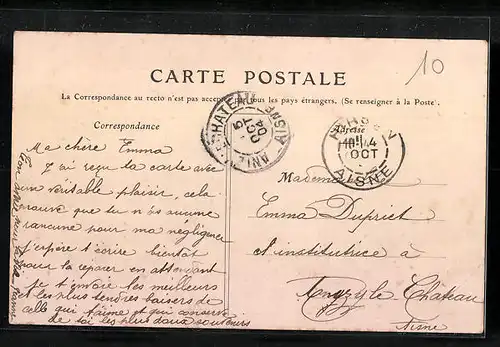 10
CARTE POSTALE
La Correspondance au recto n'est pas acceptée par tous les pays étrangers. (Se renseigner à la Poste)
Correspondance
Adresse
Ma chère Emma
J'ai reçu ta carte avec
un véritable plaisir, cela
prouve que tu n'as aucune
rancune pour ma négligence
j'espère t'écrire bientôt
pour la réparer en attendant
je t'envoie les meilleurs
et les plus tendres baisers de
celle qui t'aime et qui conserve
de toi les plus doux souvenirs
Mademoiselle
Emma Dupriet
institutrice à
Anizy le Chateau
Aisne
ANIZY-LE-CHATEAU AISNE
5
OCT
04
OCT
AISNE